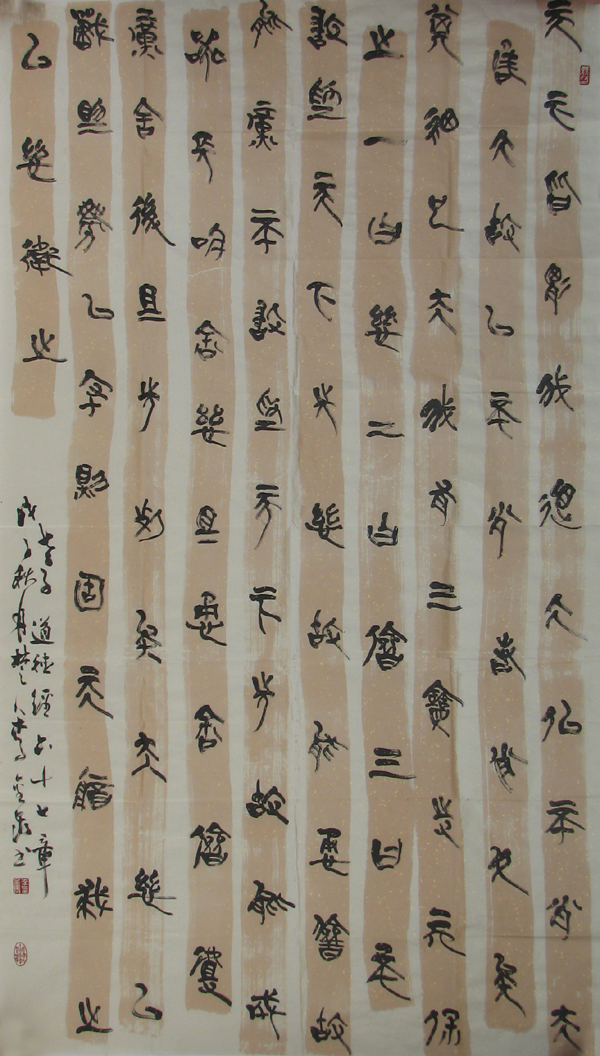 天下皆胃我德大似不肖夫
唯大故以不肖若肖久矣
其細也夫我有三寶之而保
之一曰慈二曰儉三曰不
敢為天下先慈故能勇儉故
能廣不敢為天下先故能成
器長今舍慈且勇舍儉且
廣舍後且先則死矣夫慈以
戰則勝以守則固天將救之
以慈衛之
老子道德經六十七章
戊子秋月楚人李金泉書